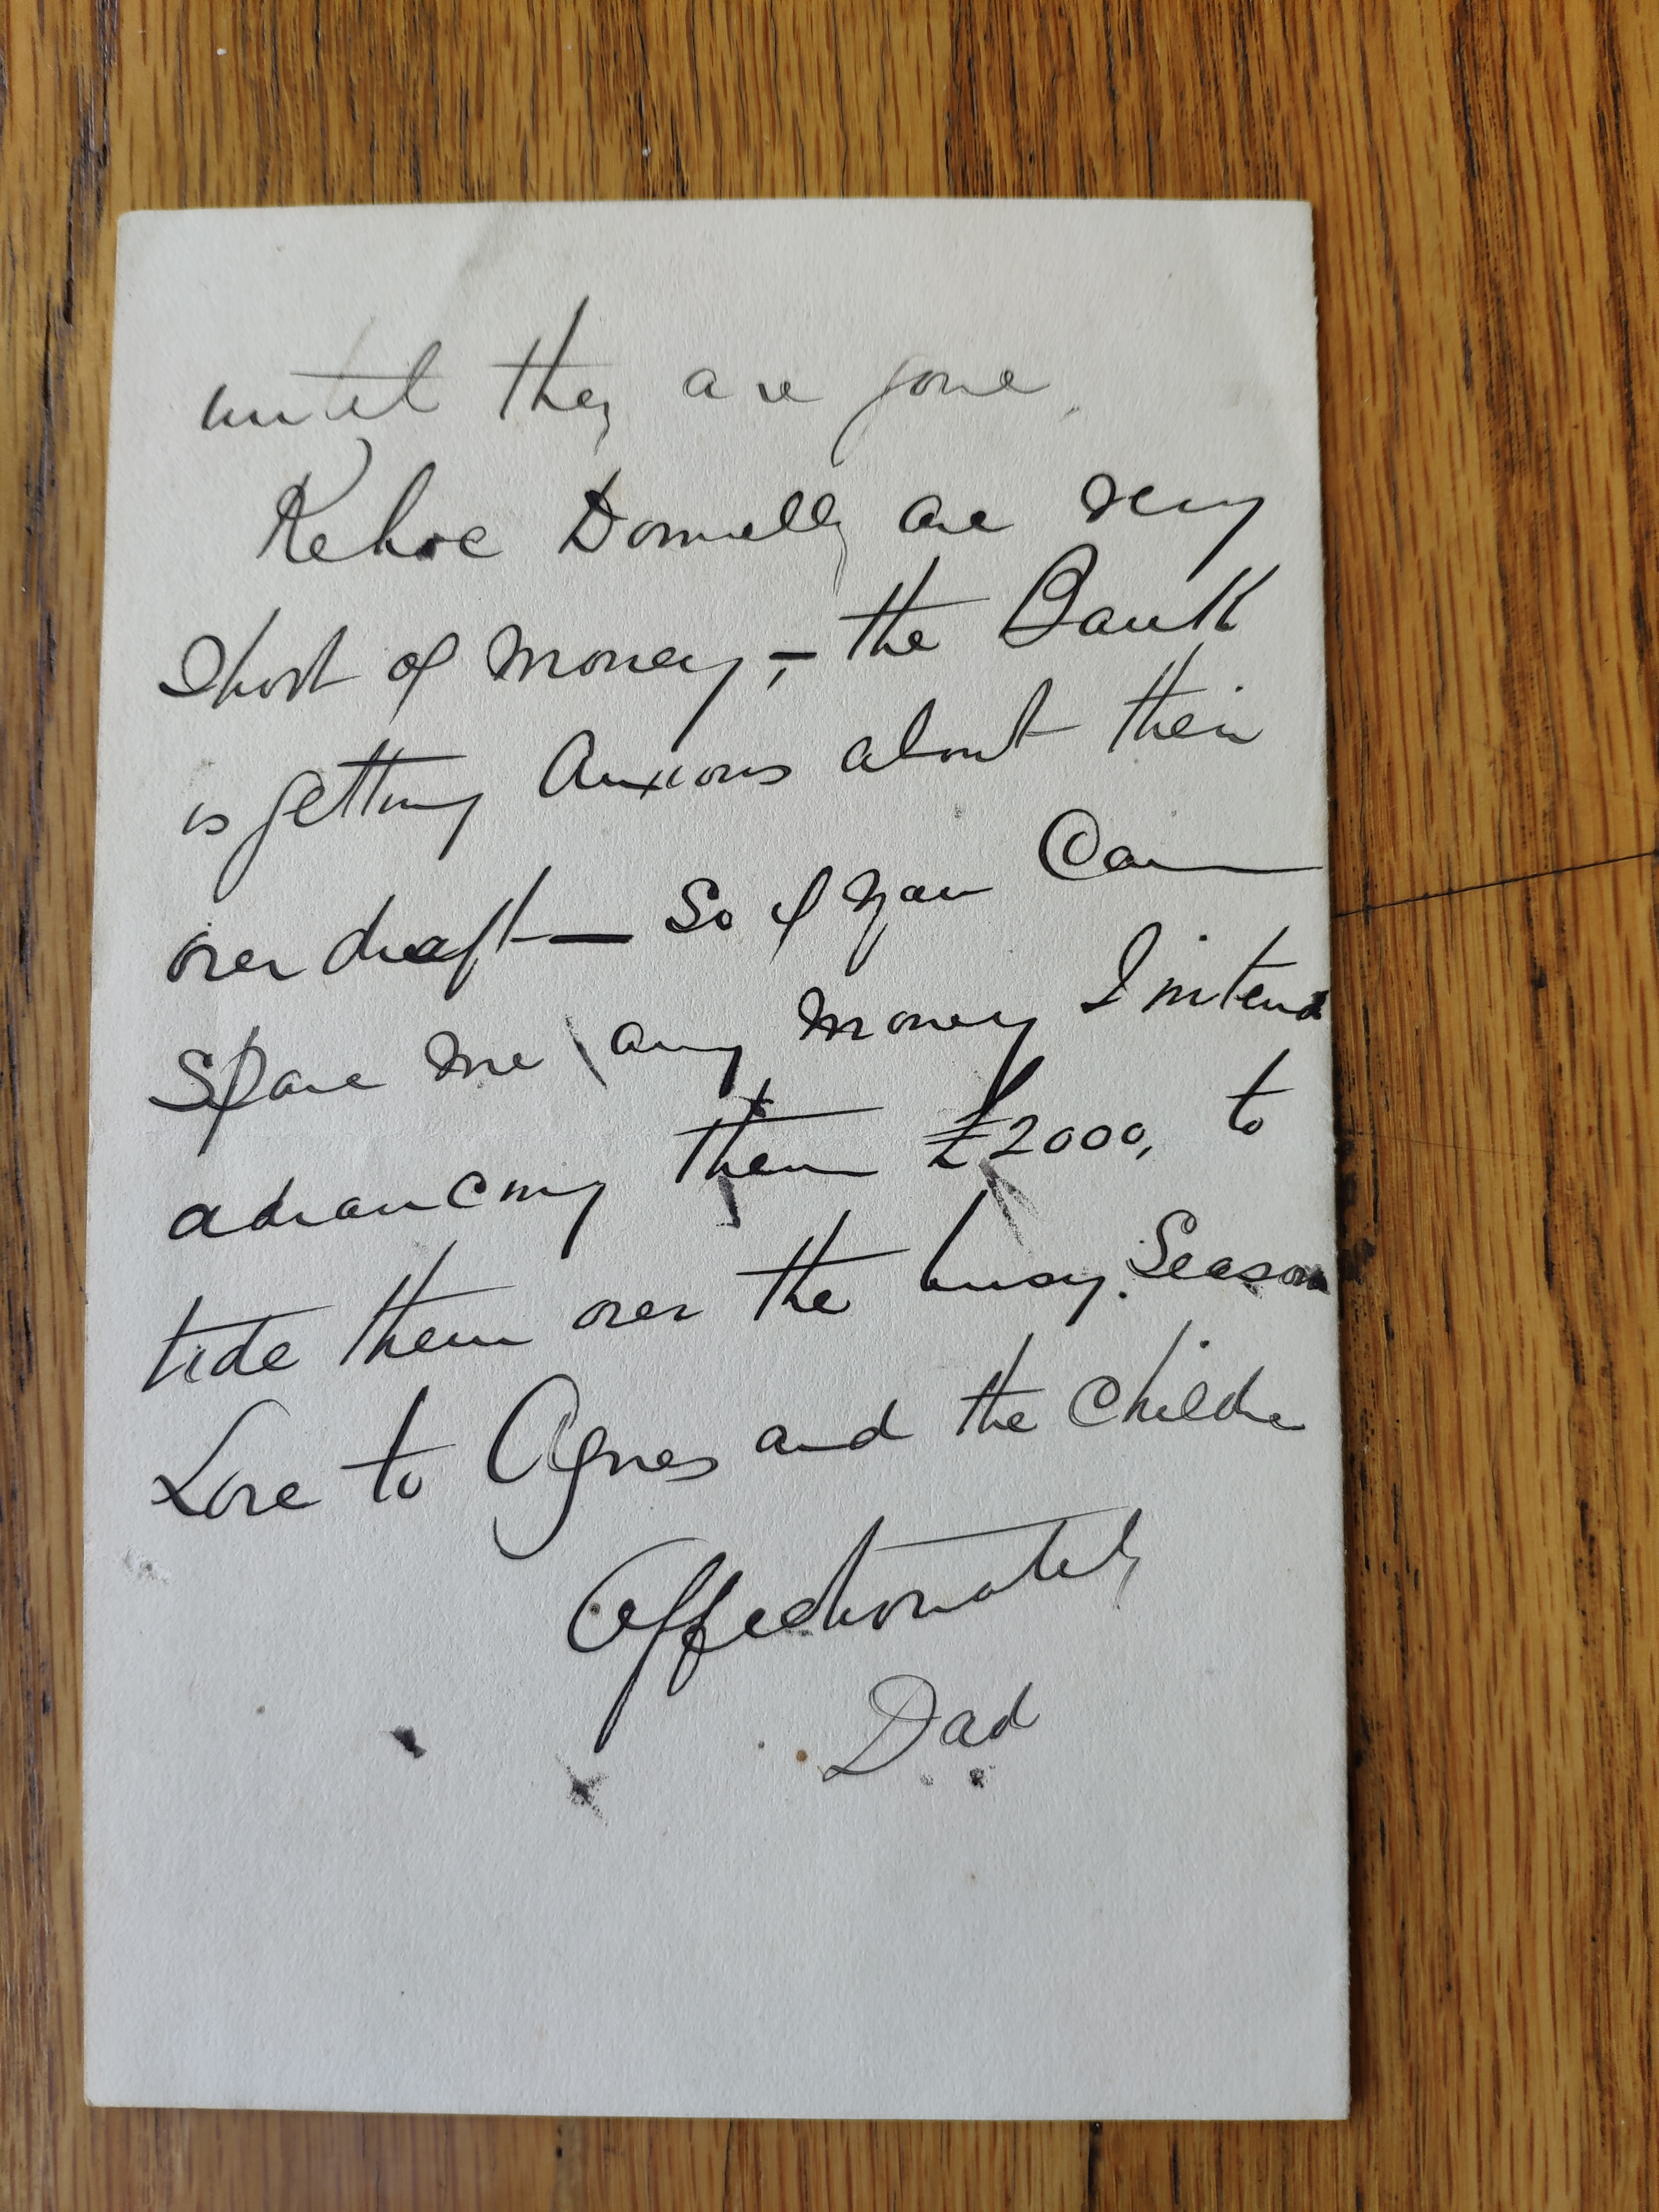 until they are gone.
Kehoe Donnelly are very
short of money, – the Bank
is getting anxious about their
over draft — So if you can
spare me any money I intend
advancing them £2000, to
tide them over the busy season
Love to Agnes and the childre
Affectionately
Dad